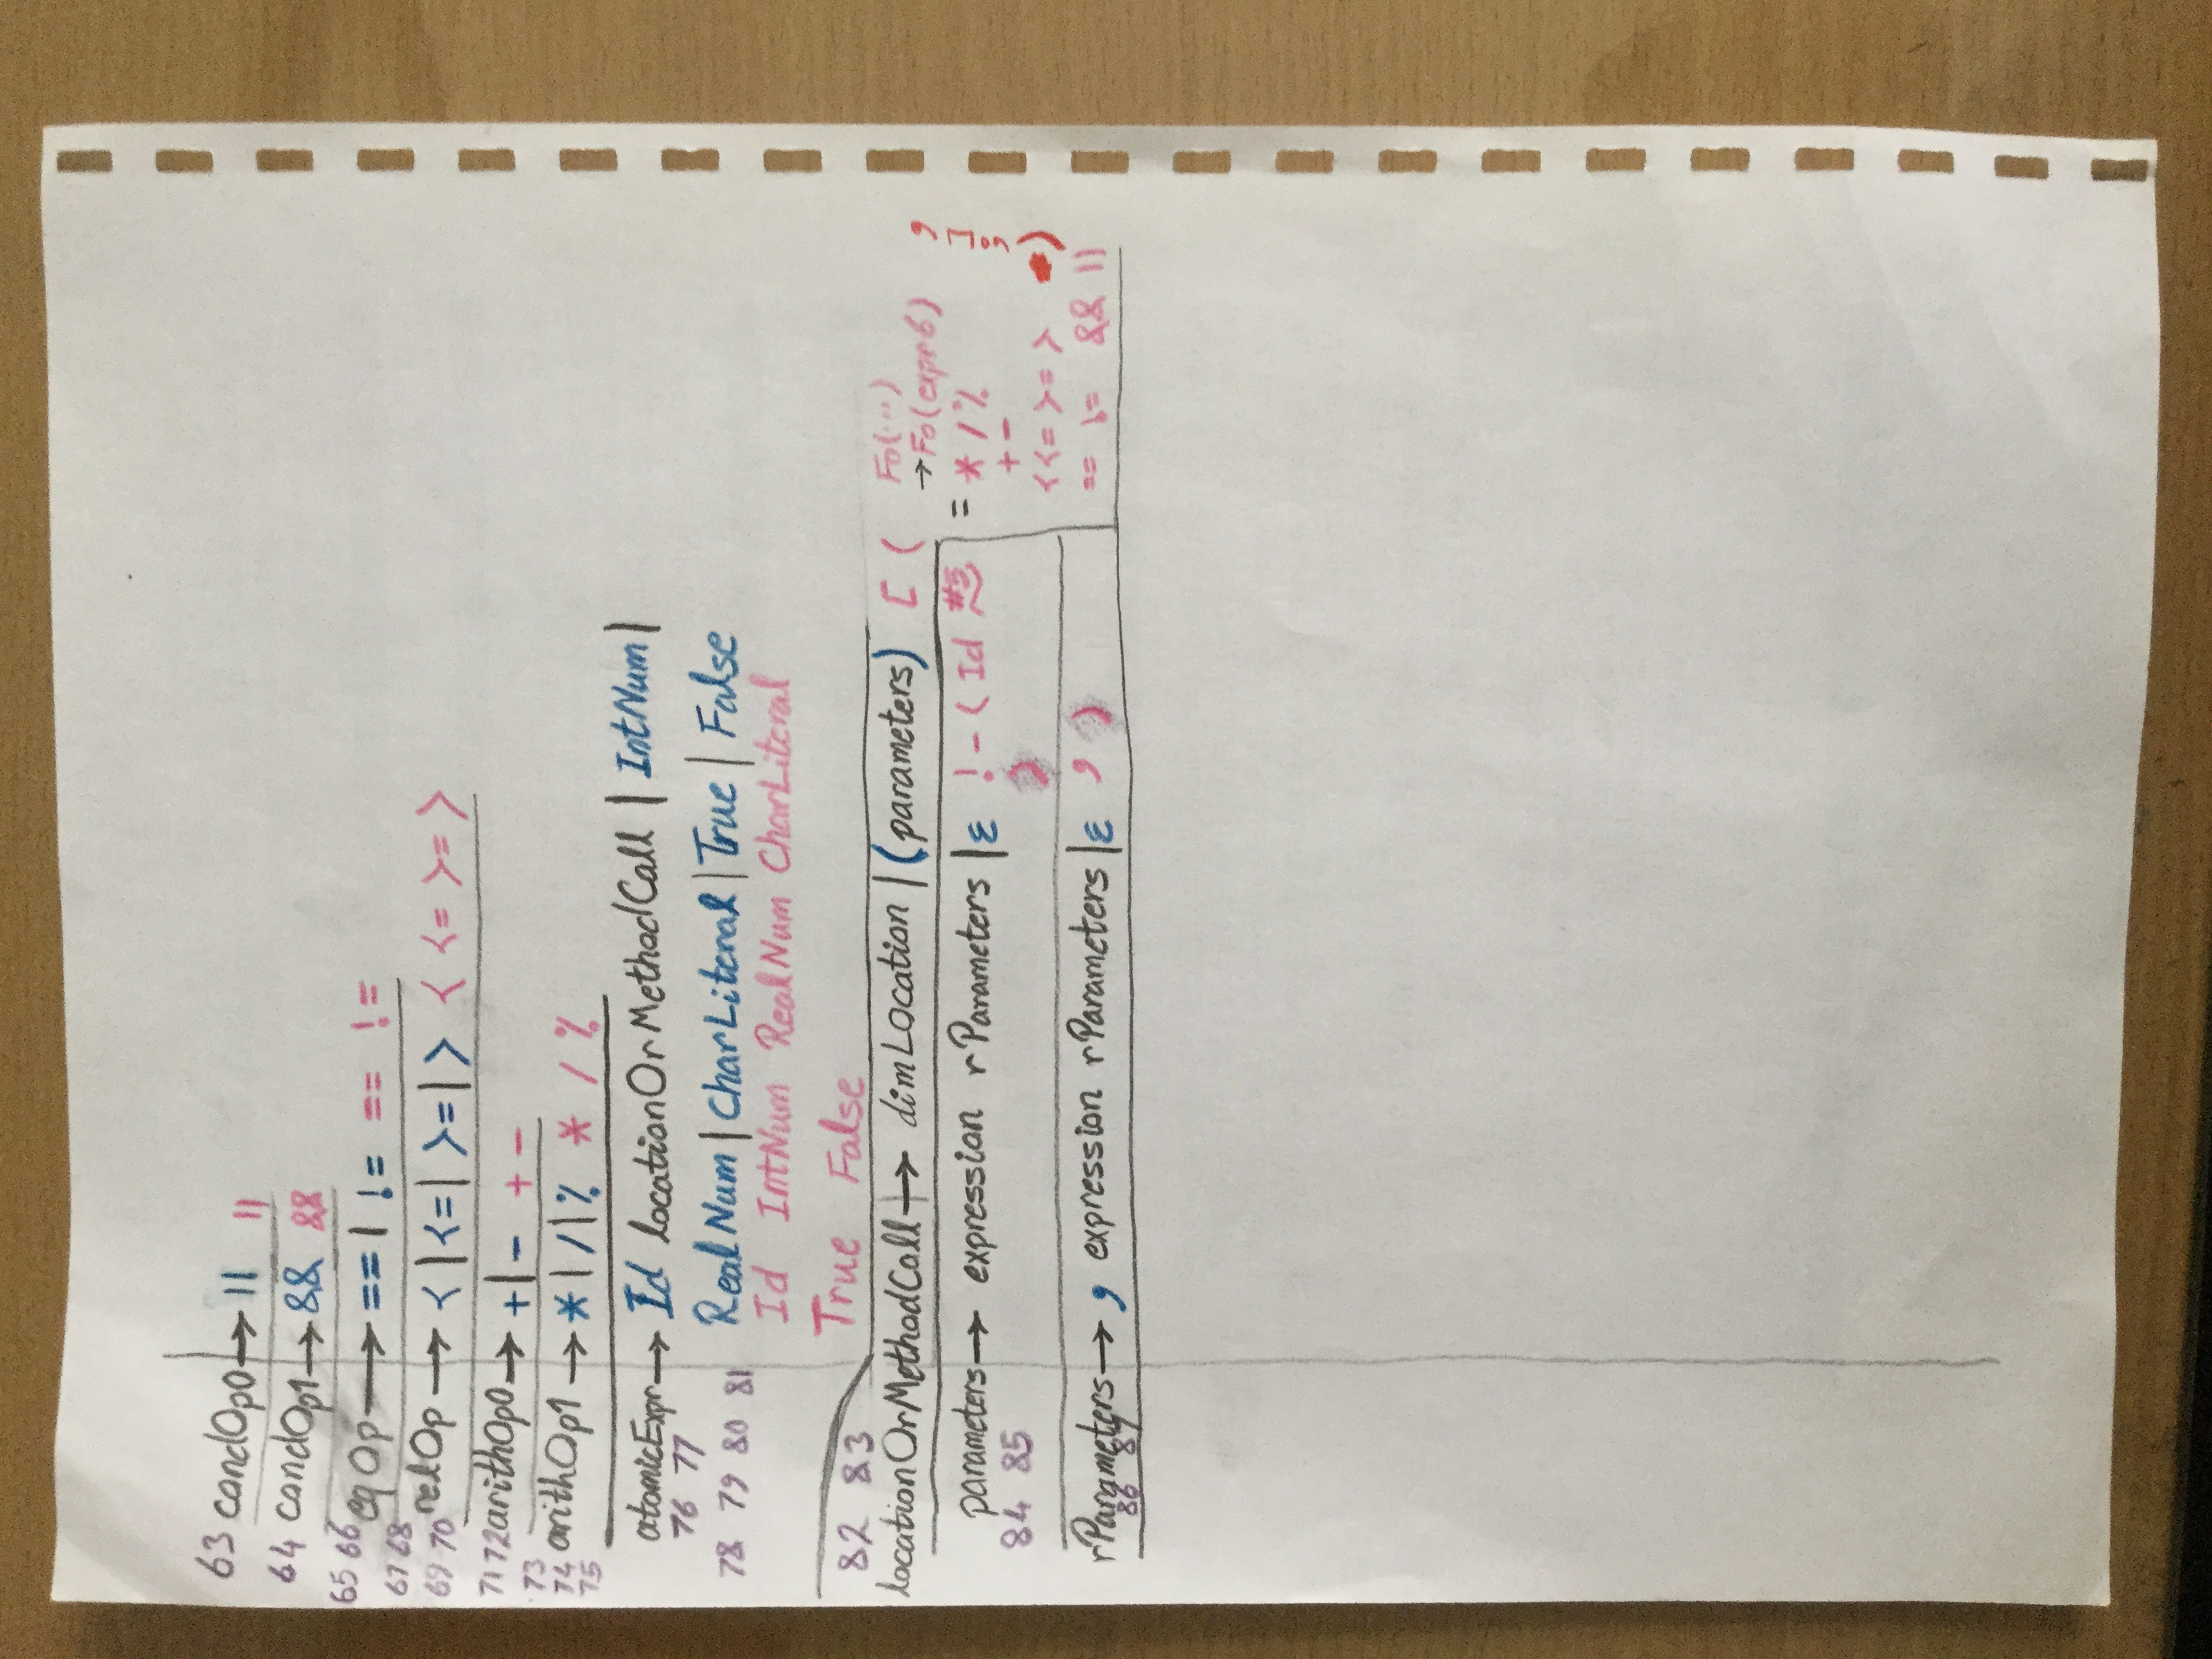 63 condOp0 → || ||
64 condOp1 → && &&
65 66 eqOp → == | != == !=
67 68
69 70 relOp → < | <= | >= | > < <= >= >
71 72 arithOp0 → + | - + -
73
74 arithOp1 → * | / | % * / %
75
atomicExpr → Id locationOrMethodCall | IntNum |
76 77
78 79 80 81 RealNum | CharLiteral | True | False
Id IntNum RealNum CharLiteral
True False
82 83
locationOrMethodCall → dimLocation | (parameters) [ ( Fo(...)
→ Fo(expr6) ,
parameters → expression rParameters | ε ! - ( Id = * / % ]
84 85 ) + - ;
< <= >= > )
rParameters → , expression rParameters | ε , ) == != && ||
86 87